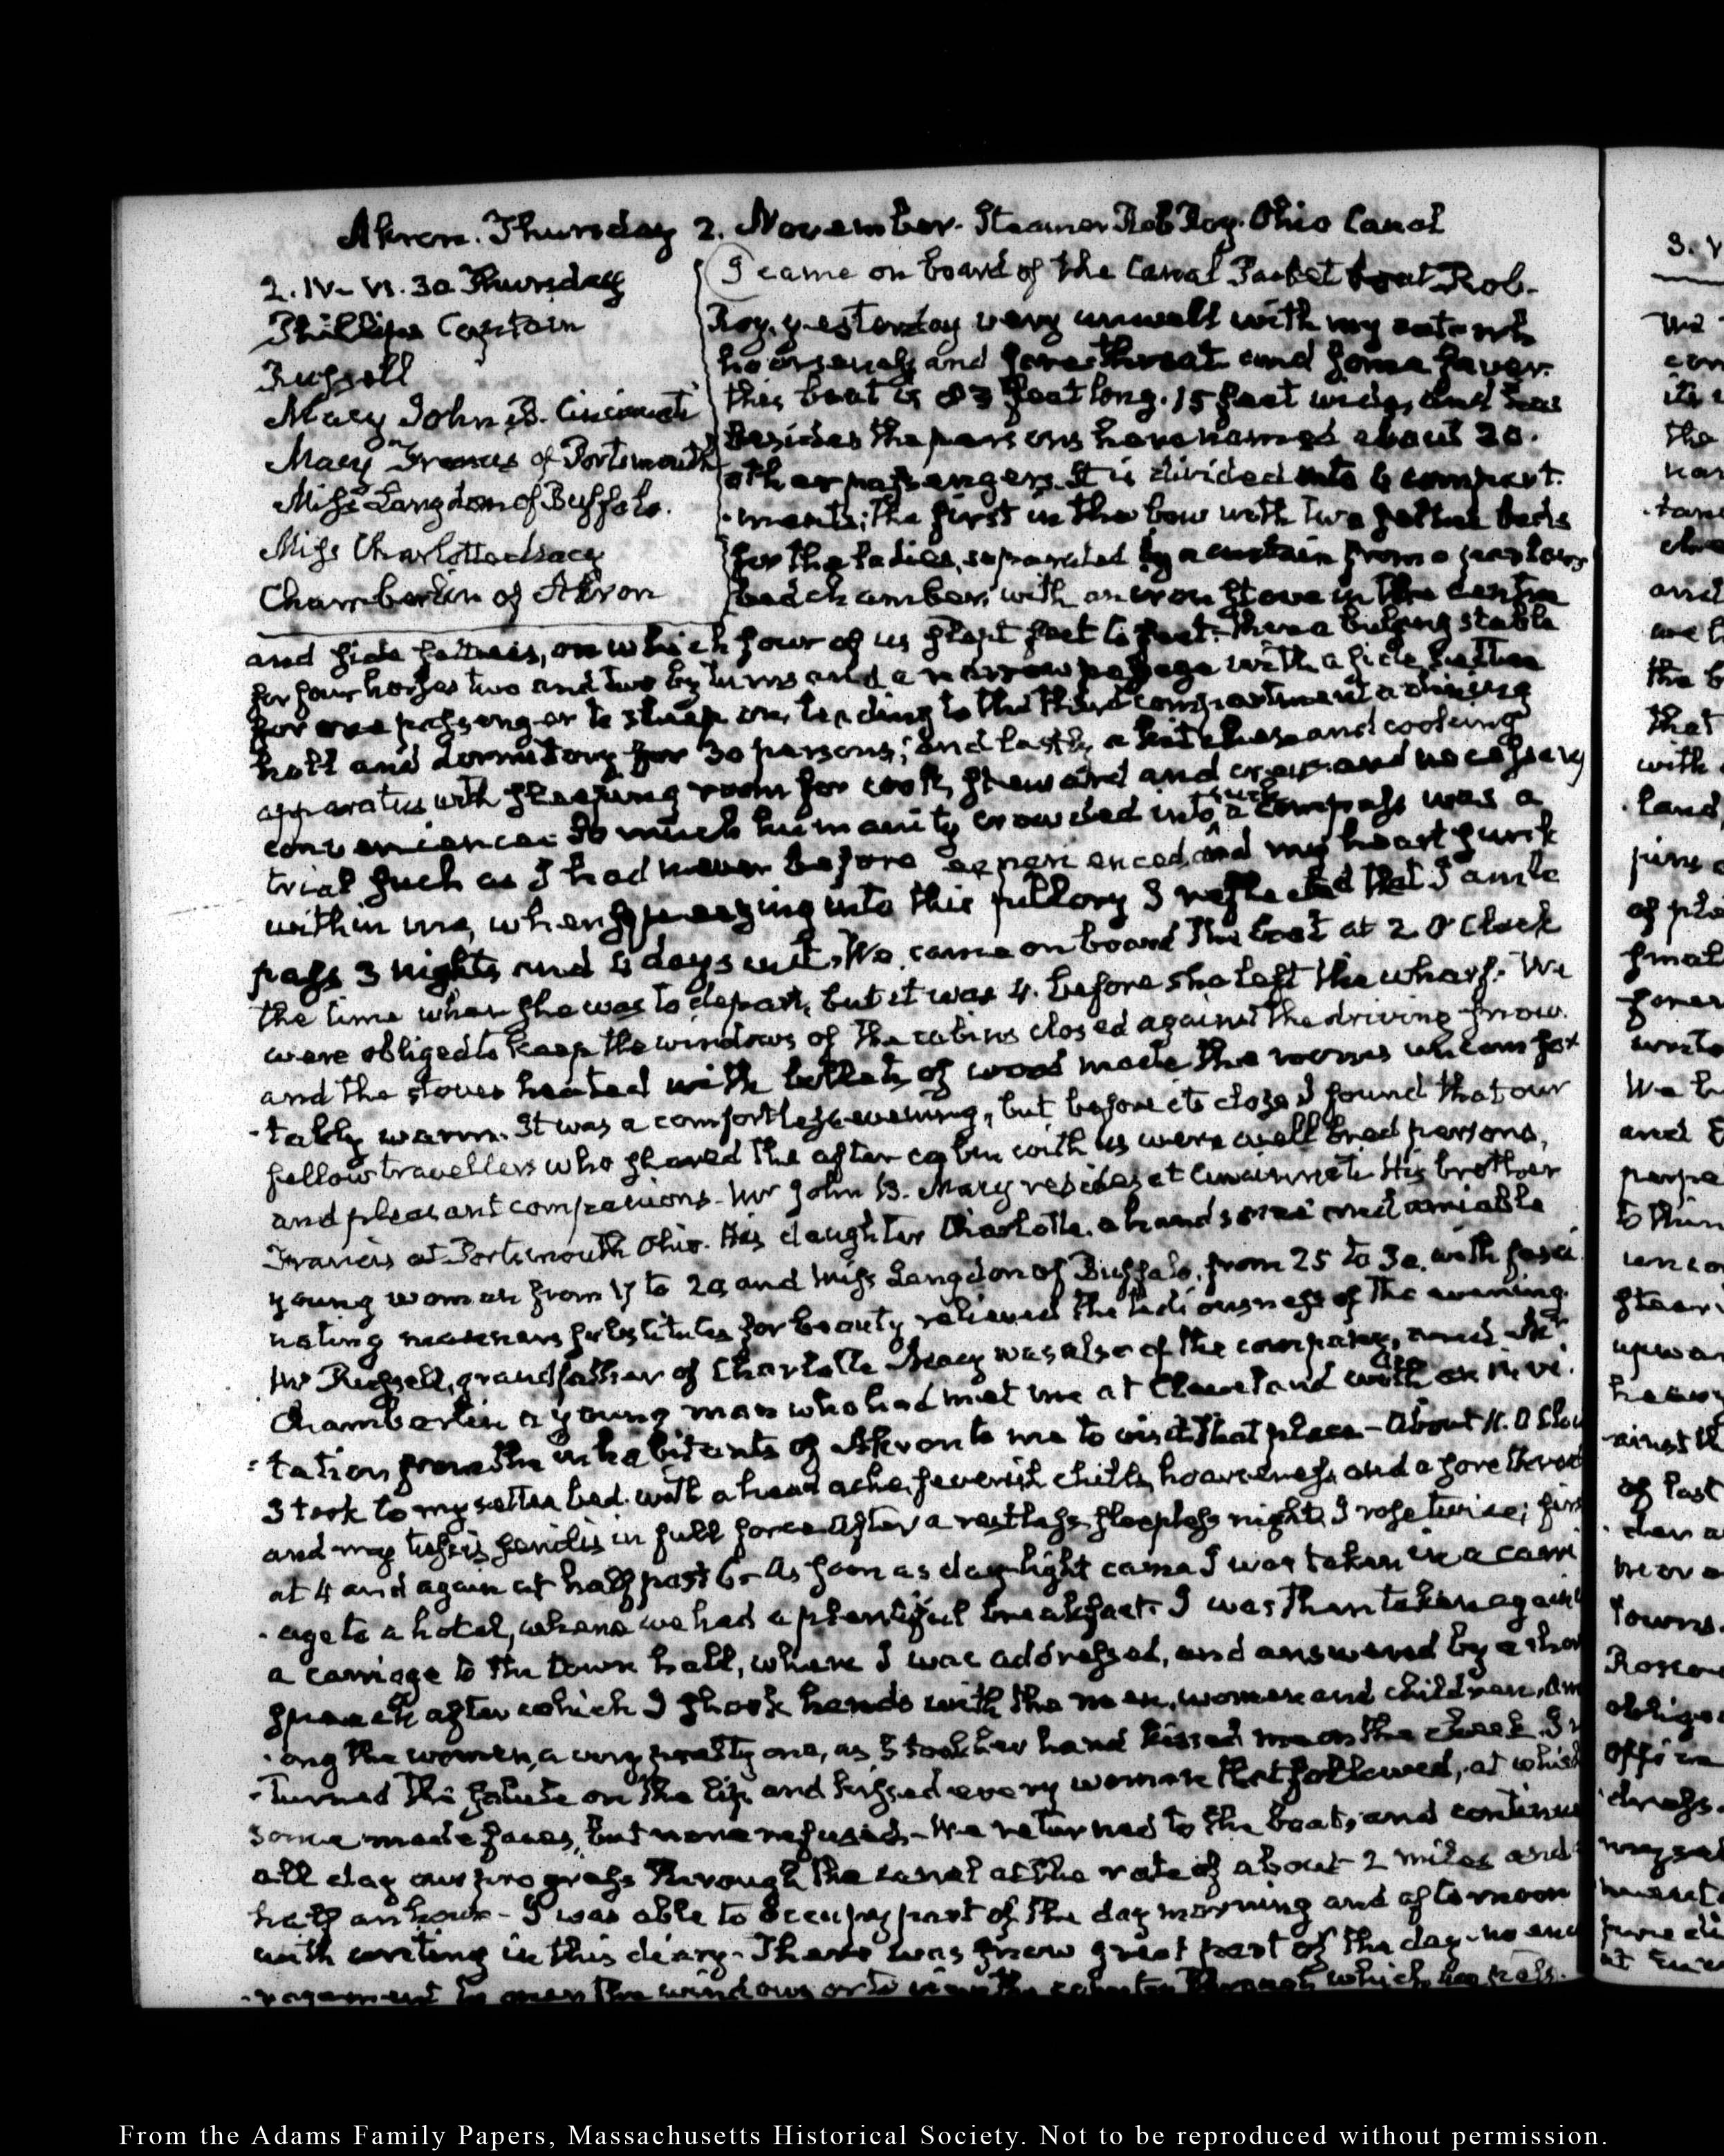 Akron. Thursday 2. November. Steamer Rob Roy. Ohio Canal
2. IV - VI. 30 Thursday
Phillips Captain
Russell
Macy John B. Cincinnati
Macy Francis of Portsmouth
Miss Langdon of Buffalo.
Miss Charlotte Macy
Chamberlin of Akron
I came on board of the Canal Packet boat Rob-
Roy, yesterday very unwell with my catarrh
hoarseness and sore throat and some fever.
this boat is 83 feet long. 15 feet wide, and has
besides the persons here named about 20.
other passengers. It is divided into 6 compart.
-ments; the first in the bow with two settee beds
for the ladies, separated by a curtain from a parlour
bed chamber, with an iron stove in the centre
and side settees, on which four of us slept feet to feet. Then a bulging stable
for four horses two and two by turns and a narrow passage with a side settee
for one passenger to sleep on, leading to the third compartment a dining
hall and dormitory for 30 persons; and lastly a kitchen and cooking
apparatus with sleeping room for cook, steward and crew and necessary
conveniences. So much humanity crowded into such a compass was a
trial such as I had never before experienced, and my heart sunk
within me, when squeezing into this pillory I reflected that I am to
pass 3 nights and 4 days in it. We came on board the boat at 2 O'Clock
the time when she was to depart, but it was 4. before she left the wharf. We
were obliged to keep the windows of the cabins closed against the driving snow.
and the stoves heated with billets of wood made the rooms uncomfor
-tably warm. It was a comfortless evening, but before its close I found that our
fellow travellers who shared the after cabin with us were well bred persons,
and pleasant companions. Mr John B. Macy resides at Cincinnati His brother
Francis at Portsmouth Ohio. His daughter Charlotte. a handsome and amiable
young woman from 17 to 20 and Miss Langdon of Buffalo, from 25 to 30. with fasci
nating manners substitutes for beauty relieved the tediousness of the evening.
Mr Russell, grandfather of Charlotte Macy was also of the company, and Mr
Chamberlin a young man who had met me at Cleveland with an invi.
-tation from the inhabitants of Akron to me to visit that place - About 11. O Clock
I took to my settee bed. with a head ache, feverish chills, hoarseness, and a sore throat
and my tussis senilis in full force. After a restless sleepless night, I rose twice; first
at 4 and again at half past 6 - As soon as day light came I was taken in a carri
-age to a hotel, where we had a plentiful breakfast. I was then taken again
a carriage to the town hall, where I was addressed, and answered by a short
speech after which I shook hands with the men, women and children, Am
-ong the women, a very pretty one, as I took her hand kissed me on the cheek. I re
-turned the salute on the lip, and kissed every woman that followed, at which
some made faces, but none refused - We returned to the boat, and continued
all day our progress through the canal at the rate of about 2 miles and
half an hour - I was able to occupy part of the day morning and afternoon
with writing in this diary. There was snow great part of the day - no encou
-ragement to open the windows or to view the country through which we pass.